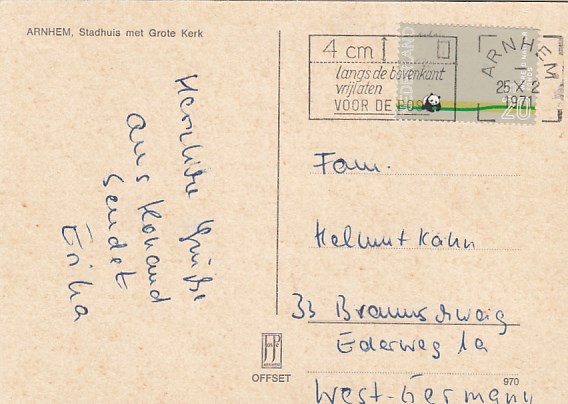 ARNHEM, Stadhuis met Grote Kerk
Herzliche Grüße
aus Holland
sendet
Erika
4 cm
langs de bovenkant
vrijlaten
VOOR DE POST
ARNHEM
25 X 2
1971
NEDERLAND
20
Fam.
Helmut Kahn
33 Braunschweig
Ederweg 1a
West-Germany
OFFSET
970